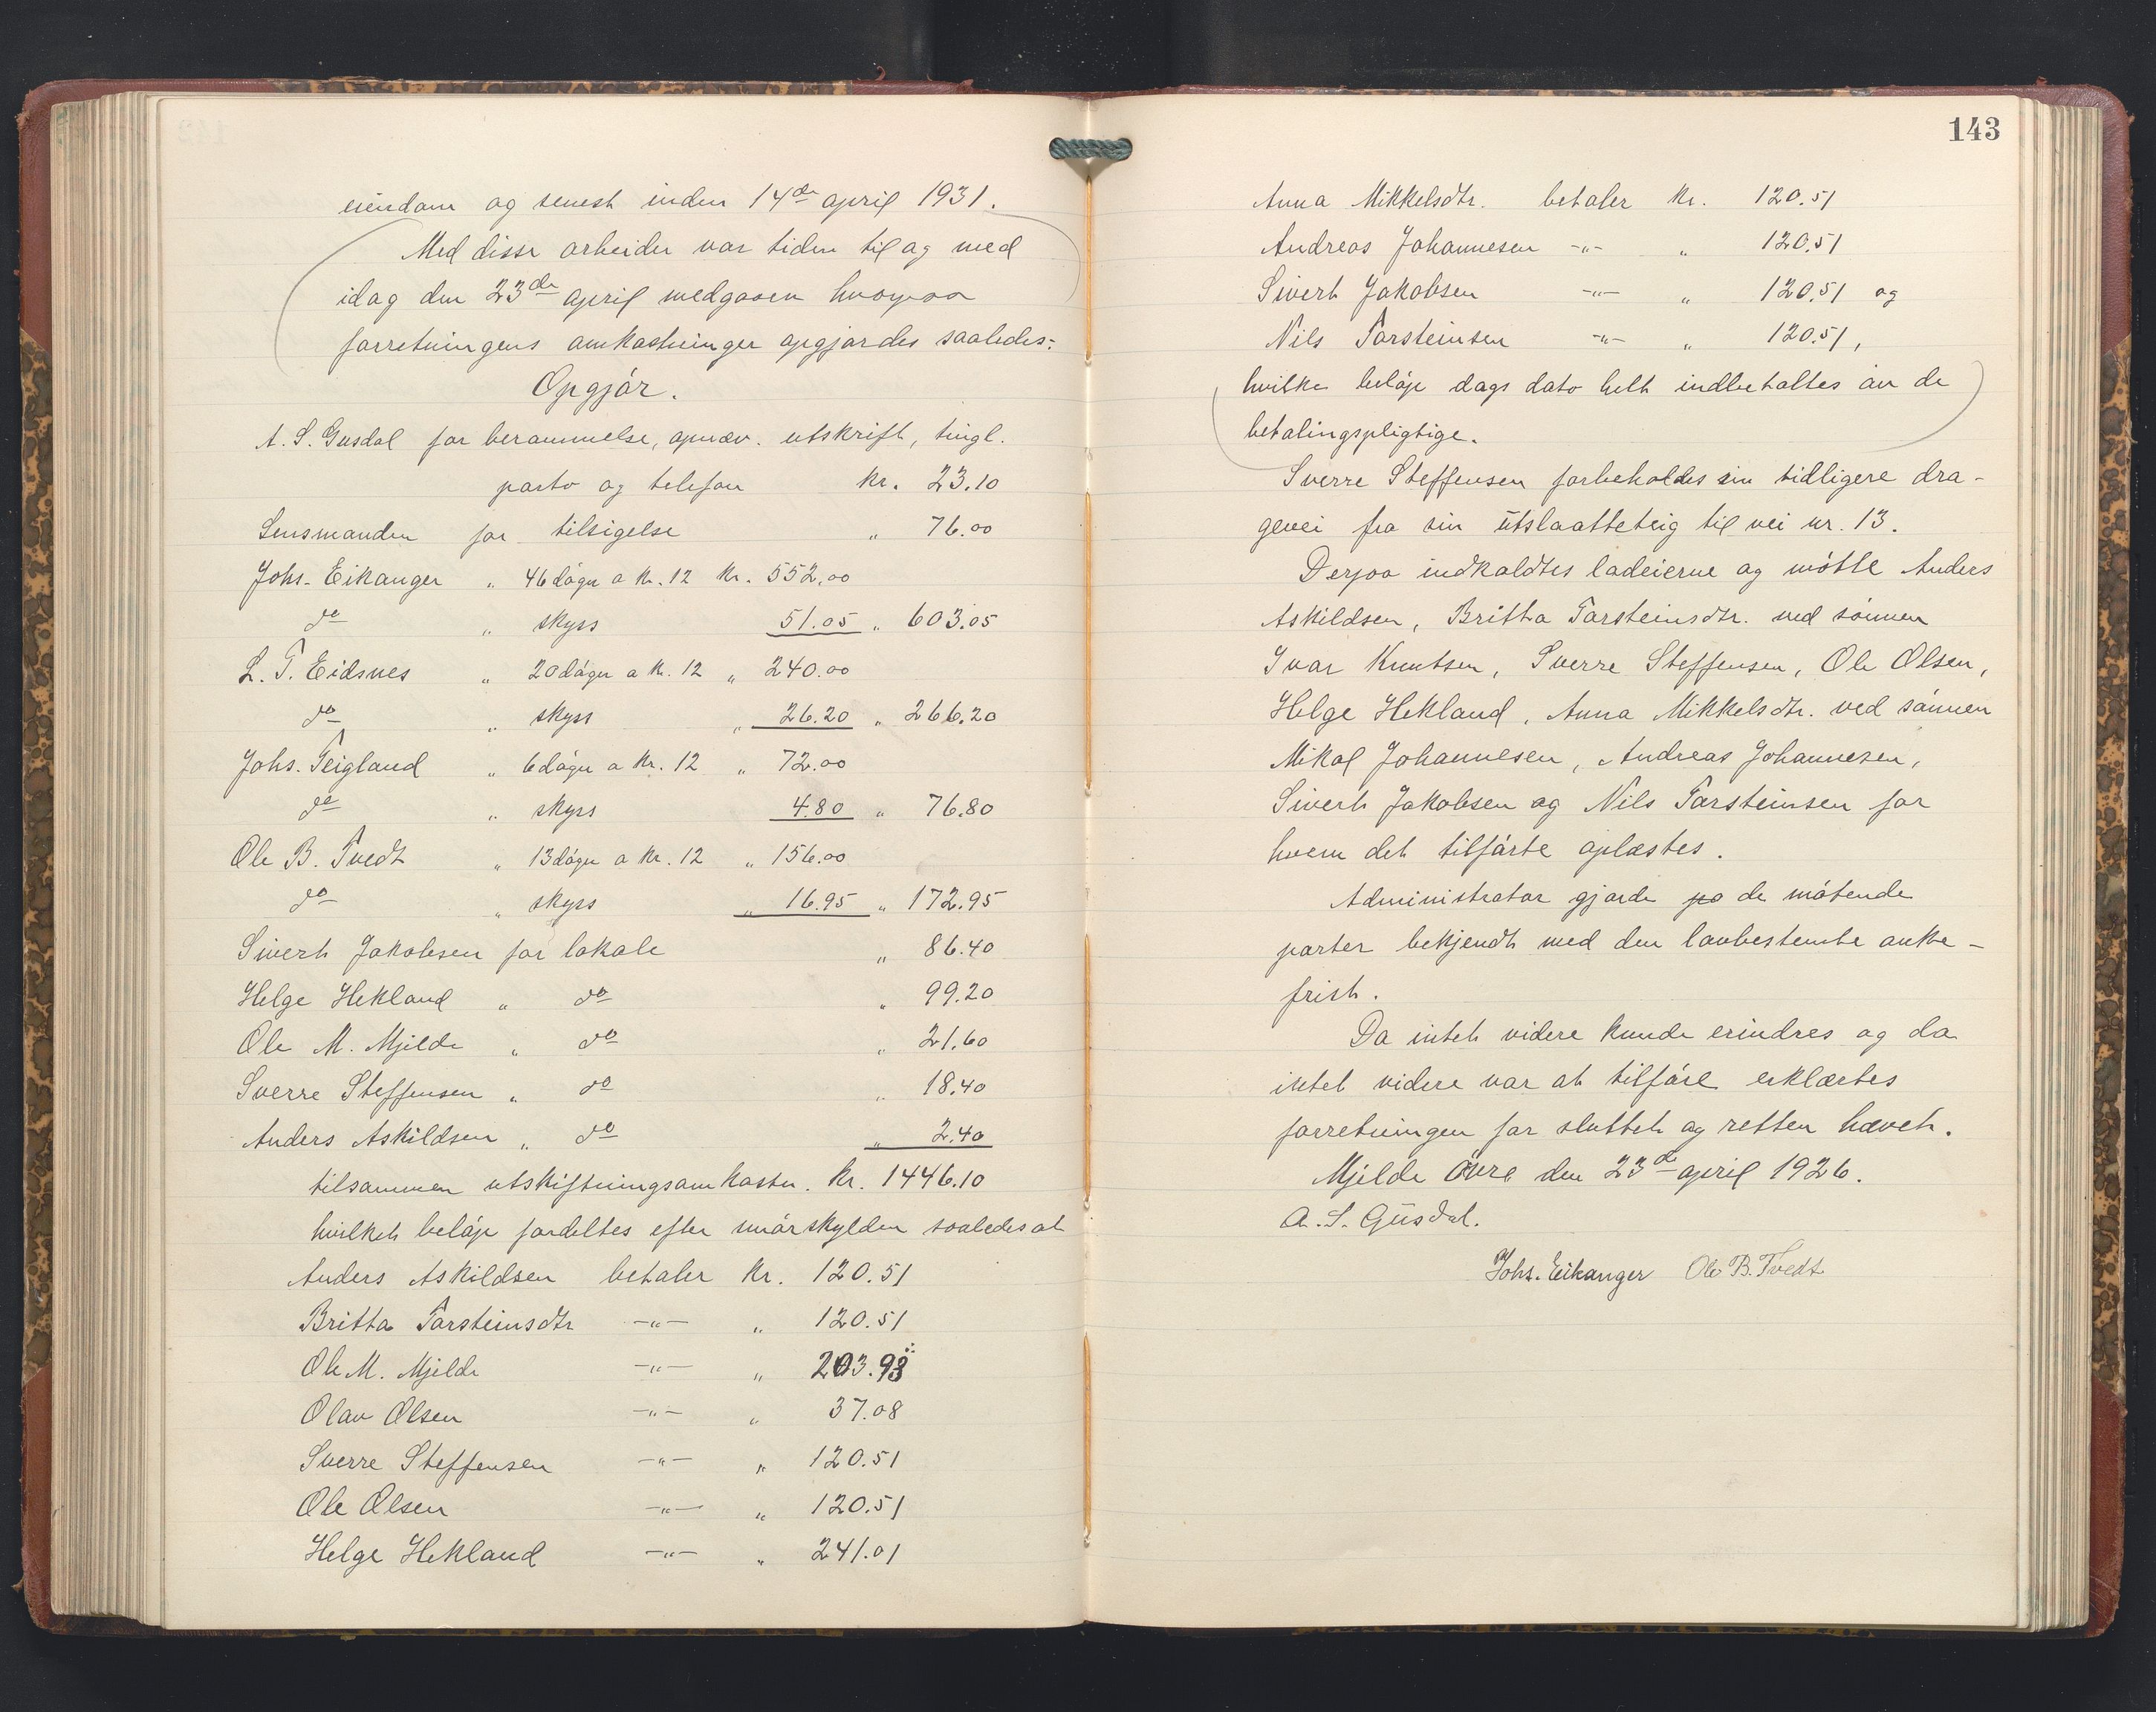 eiendom og senest inden 14de april 1931.
Med disse arbeider var tiden til og med
idag den 23de april medgaaen hvorpaa
forretningens omkostninger opgjordes saaledes:
Opgjör.
A. S. Gusdal for berammelse, opnæv. utskrift, tingl.
porto og telefon kr. 23.10
Lensmanden for tilsigelse " 76.00
Johs. Eikanger " 46 döger a kr. 12 kr. 552.00
do " skyss 51.05 " 603.05
L. T. Eidsnes " 20 döger a kr. 12 " 240.00
do " skyss " 26.20 " 266.20
Johs. Teigland " 6 döger a kr. 12 " 72.00
do " skyss 4.80 " 76.80
Ole B. Tvedt " 13 döger a kr. 12 " 156.00
do " skyss " 16.95 " 172.95
Sivert Jakobsen for lokale " 86.40
Helge Hekland " do " 99.20
Ole M. Mjelde " do " 21.60
Sverre Steffensen " do " 18.40
Anders Askildsen " do " 2.40
tilsammen utskiftningsomkostn. kr. 1446.10
hvilket belöp fordeltes efter urörskylden saaledes at
Anders Askildsen betaler kr. 120.51
Britta Torsteinsdtr -"- " 120.51
Ole M. Mjelde -"- " 203.93
Olav Olsen -"- " 37.08
Sverre Steffensen -"- " 120.51
Ole Olsen -"- " 120.51
Helge Hekland -"- " 241.01
143
Anna Mikkelsdtr. betaler kr. 120.51
Andreas Johannesen -"- " 120.51
Sivert Jakobsen -"- " 120.51 og
Nils Torsteinsen -"- " 120.51,
hvilke belöp dags dato helt indbetaltes av de
betalingspligtige.
Sverre Steffensen forbeholdes sin tidligere dra-
gevei fra sin utslaatteteig til vei nr. 13.
Derpaa indkaldtes lodeierne og mötte Anders
Askildsen, Britta Torsteinsdtr. ved sönnen
Ivar Knutsen, Sverre Steffensen, Ole Olsen,
Helge Hekland, Anna Mikkelsdtr. ved sönnen
Mikal Johannesen, Andreas Johannesen,
Sivert Jakobsen og Nils Torsteinsen for
hvem det tilförte oplæstes.
Administrator gjorde pa de mötende
parter bekjendt med den lovbestemte anke-
frist.
Da intet videre kunde erindres og da
intet videre var at tilföre erklærtes
forretningen for sluttet og retten hævet.
Mjelde övre den 23de april 1926.
A. S. Gusdal.
Johs. Eikanger Ole B. Tvedt